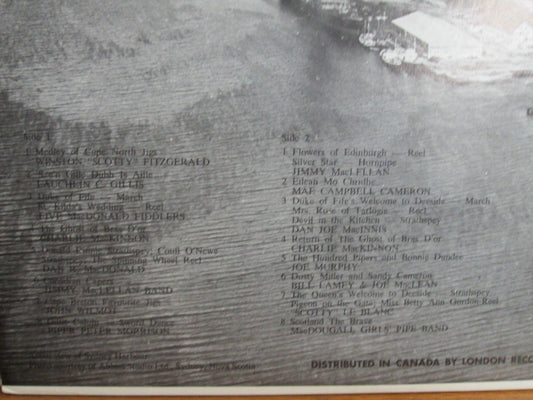 Side 1
1 Medley of Cape North Jigs
WINSTON "SCOTTY" FITZGERALD
Dubh Is Aille
LAUCHLIN C. GILLIS
Duke of Fife — March
Wedding — Reel
FIVE MacDONALD FIDDLERS
The Ghost of Bras D'or
CHARLIE MacKINSON
Strathspey;
Spinning Wheel Reel
DAN R. MacDONALD
JIMMY McLELLAN BAND
Cape Breton Favourite Jigs
JOHN WILMOT
Sword Dance
PIPER PETER MORRISON
Side 2
1 Flowers of Edinburgh — Reel
Silver Star — Hornpipe
JIMMY MacLELLAN
2 Eilean Mo Chridhe
MAE CAMPBELL CAMERON
3 Duke of Fife's Welcome to Deeside — March
Mrs. Rose of Tarlogie — Reel
Devil in the Kitchen — Strathspey
DAN JOE MacINNIS
4 Return of The Ghost of Bras D'or
CHARLIE MacKINNON
5 The Hundred Pipers and Bonnie Dundee
JOE MURPHY
6 Dusty Miller and Sandy Cameron
BILL LAMEY & JOE MacLEAN
7 The Queen's Welcome to Deeside — Strathspey
Pigeon on the Gate; Miss Betty Ann Gordon-Reel
"SCOTTY" LE BLANC
8 Scotland The Brave
MacDOUGALL GIRLS' PIPE BAND
View of Sydney Harbour
Photo courtesy of Abbass Studio Ltd., Sydney, Nova Scotia
DISTRIBUTED IN CANADA BY LONDON RECO